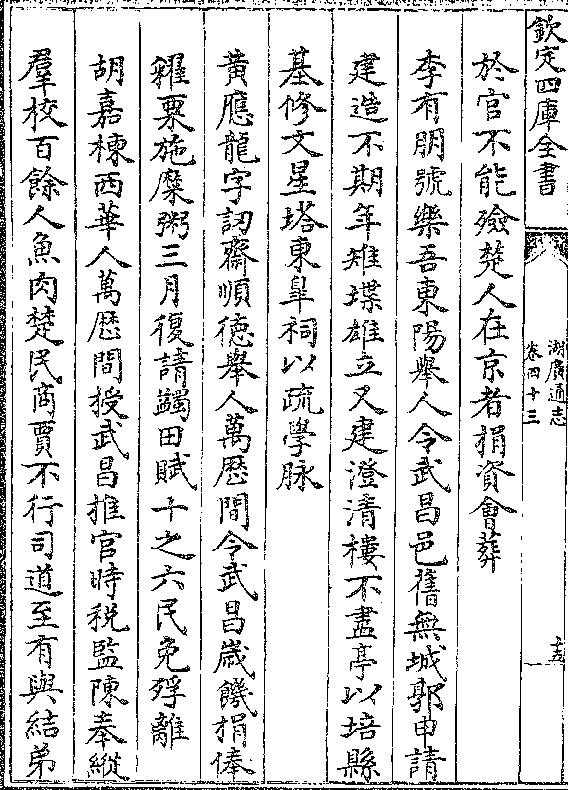 欽定四庫全書
湖廣通志
卷四十三
十五
於官不能殮楚人在京者捐資會葬
李有朋號樂吾東陽舉人令武昌邑舊無城郭申請
建造不期年雉堞雄立又建澄清樓不盡亭以培縣
基修文星塔東皐祠以疏學脉
黄應龍字訒齋順徳舉人萬厯間令武昌嵗饑捐俸
糴粟施糜粥三月復請蠲田賦十之六民免殍離
胡嘉棟西華人萬厯間授武昌推官時税監陳奉縱
羣校百餘人魚肉楚民商賈不行司道至有與結弟